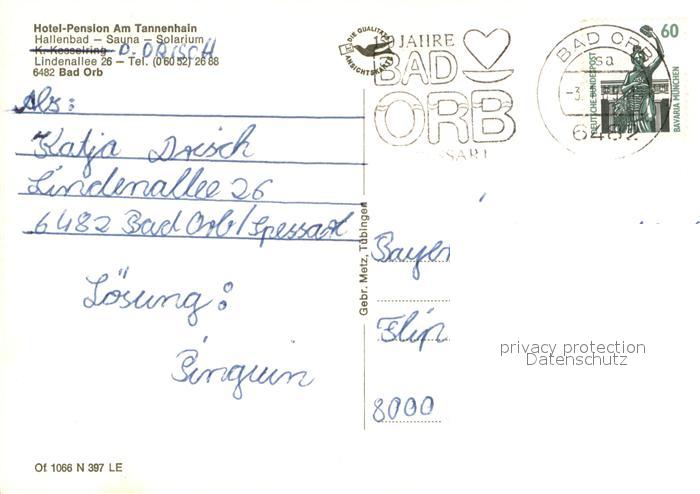 Hotel-Pension Am Tannenhain
Hallenbad – Sauna – Solarium
K. Kesselring D. DRISCH
Lindenallee 26 – Tel. (06052) 2688
6482 Bad Orb
Abs:
Katja Drisch
Lindenallee 26
6482 Bad Orb/Spessart
Lösung:
Pinguin
Of 1066 N 397 LE
Gebr. Metz, Tübingen
DIE QUALITÄTS
ANSICHTSKARTE
JAHRE
BAD
ORB
BAD ORB
sa
-3.
6482
60
DEUTSCHE BUNDESPOST
BAVARIA MÜNCHEN
Bayer
Flip
8000
privacy protection
Datenschutz